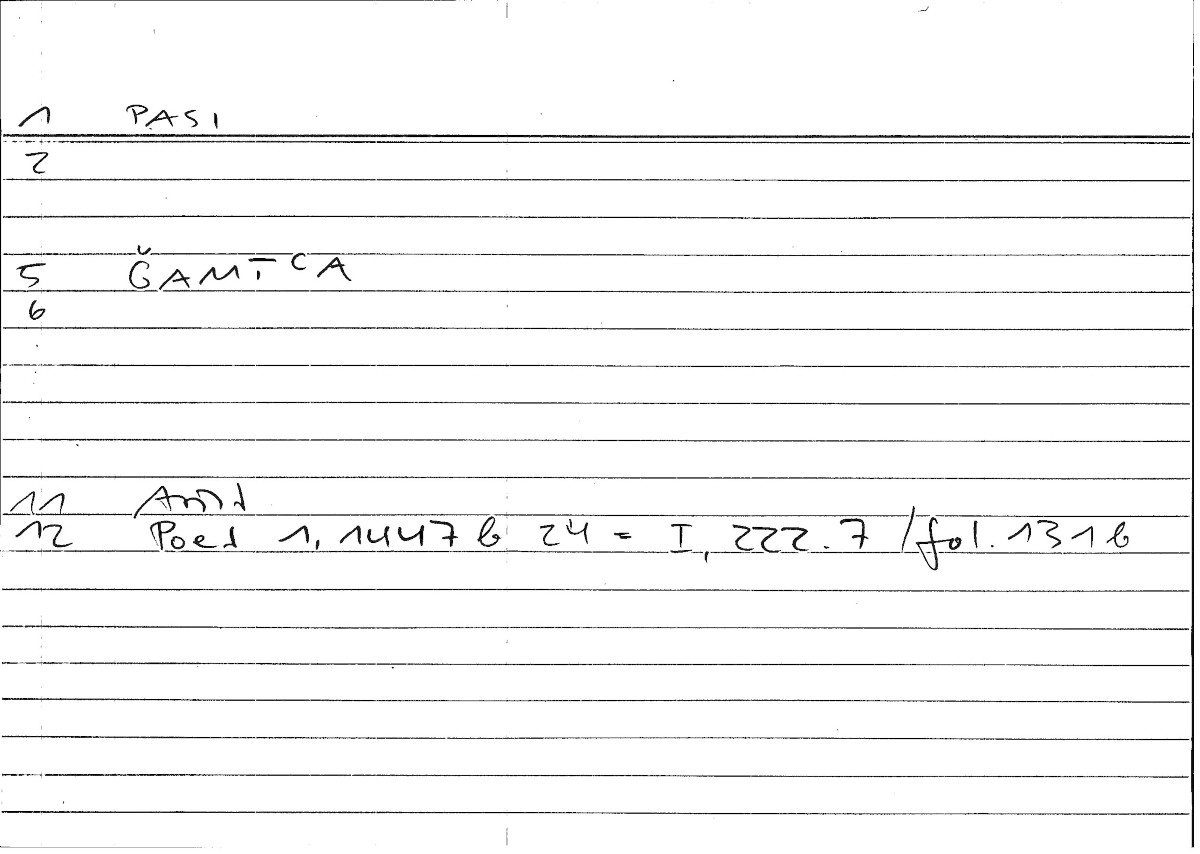 1 PASI
2
5 ǦAMĪʿA
6
11 Arist
12 Poet 1, 1447 b 24 = I, 222.7 /fol. 131b